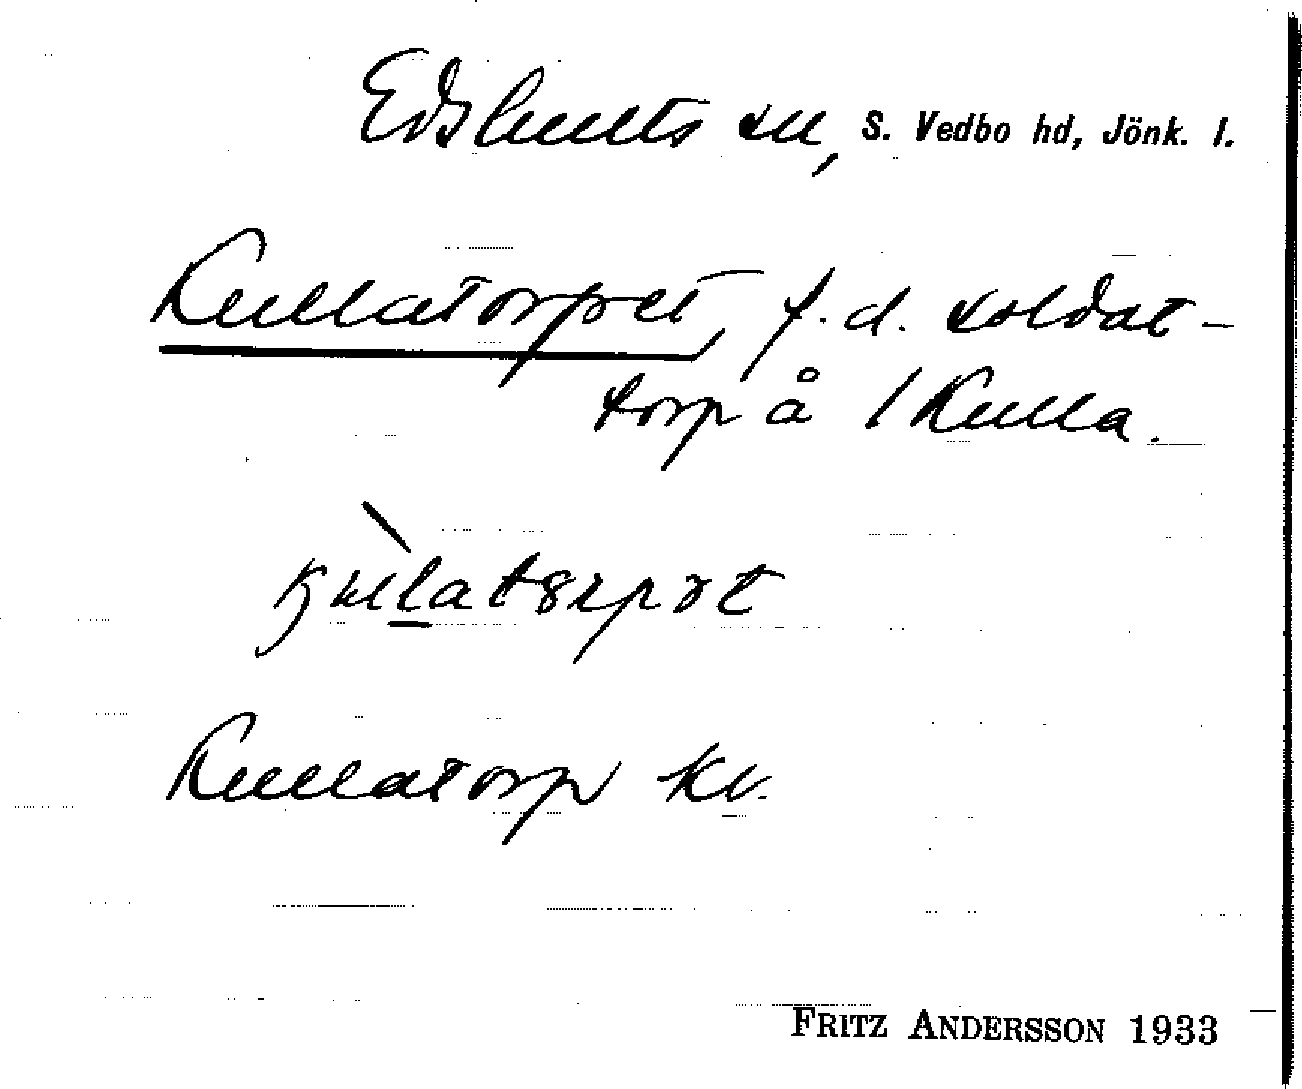 Edshults sn, S. Vedbo hd, Jönk. l.
Kullatorpet, f.d. soldat-
torp å / Kulla.
Kullatorp kv.
FRITZ ANDERSSON 1933